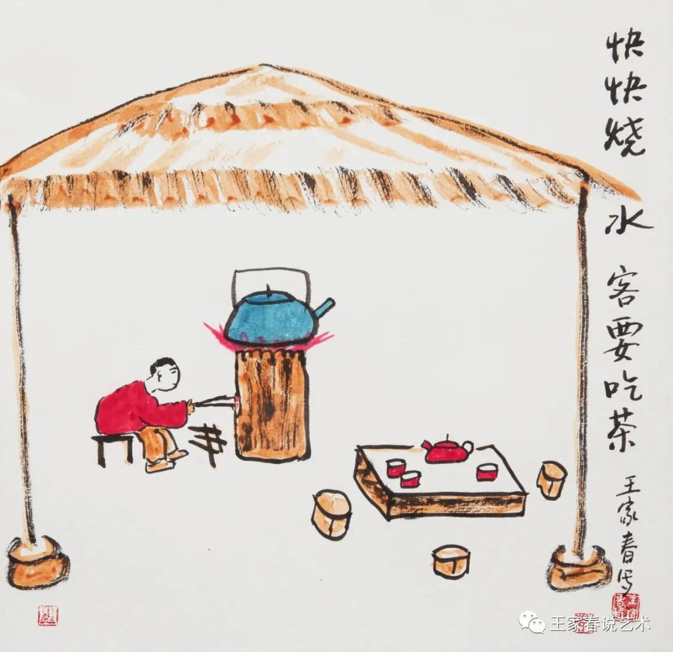 快快烧水客要吃茶
王家春写
王家春说艺术